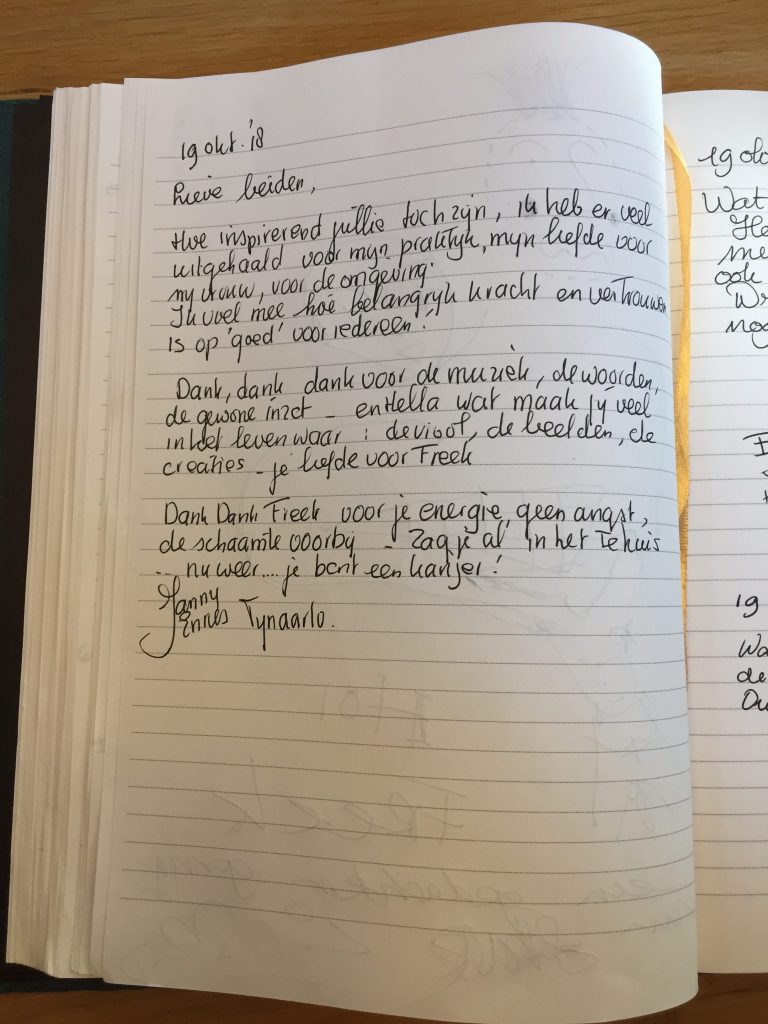 19 okt. '18
Lieve beiden,
Hoe inspirerend jullie toch zijn, ik heb er veel
uitgehaald voor mijn praktijk, mijn liefde voor
mijn vrouw, voor de omgeving.
Ik voel mee hoe belangrijk kracht en vertrouwen
is op 'goed' voor iedereen!
Dank, dank dank voor de muziek, de woorden,
de gewone inzet - en Hella wat maak jij veel
in het leven waar: de viool, de beelden, de
creaties - je liefde voor Freek
Dank Dank Freek voor je energie, geen angst,
de schaamte voorbij - Zag je al in het Tehuis
... nu weer.... je bent een kanjer!
Janny
Tynaarlo.
19
Wat
He
me
ook
Wr
nog
19
Wa
de